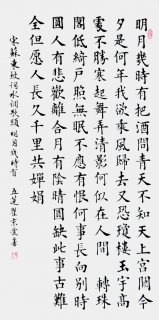 明月幾時有把酒問青天不知天上宮闕今
夕是何年我欲乘風歸去又恐瓊樓玉宇高
處不勝寒起舞弄清影何似在人間 轉珠
閣低綺戶照無眠不應有恨何事長向別時
圓人有悲歡離合月有陰晴圓缺此事古難
全但願人長久千里共嬋娟
宋蘇東坡詞水調歌頭明月幾時有
五蓮